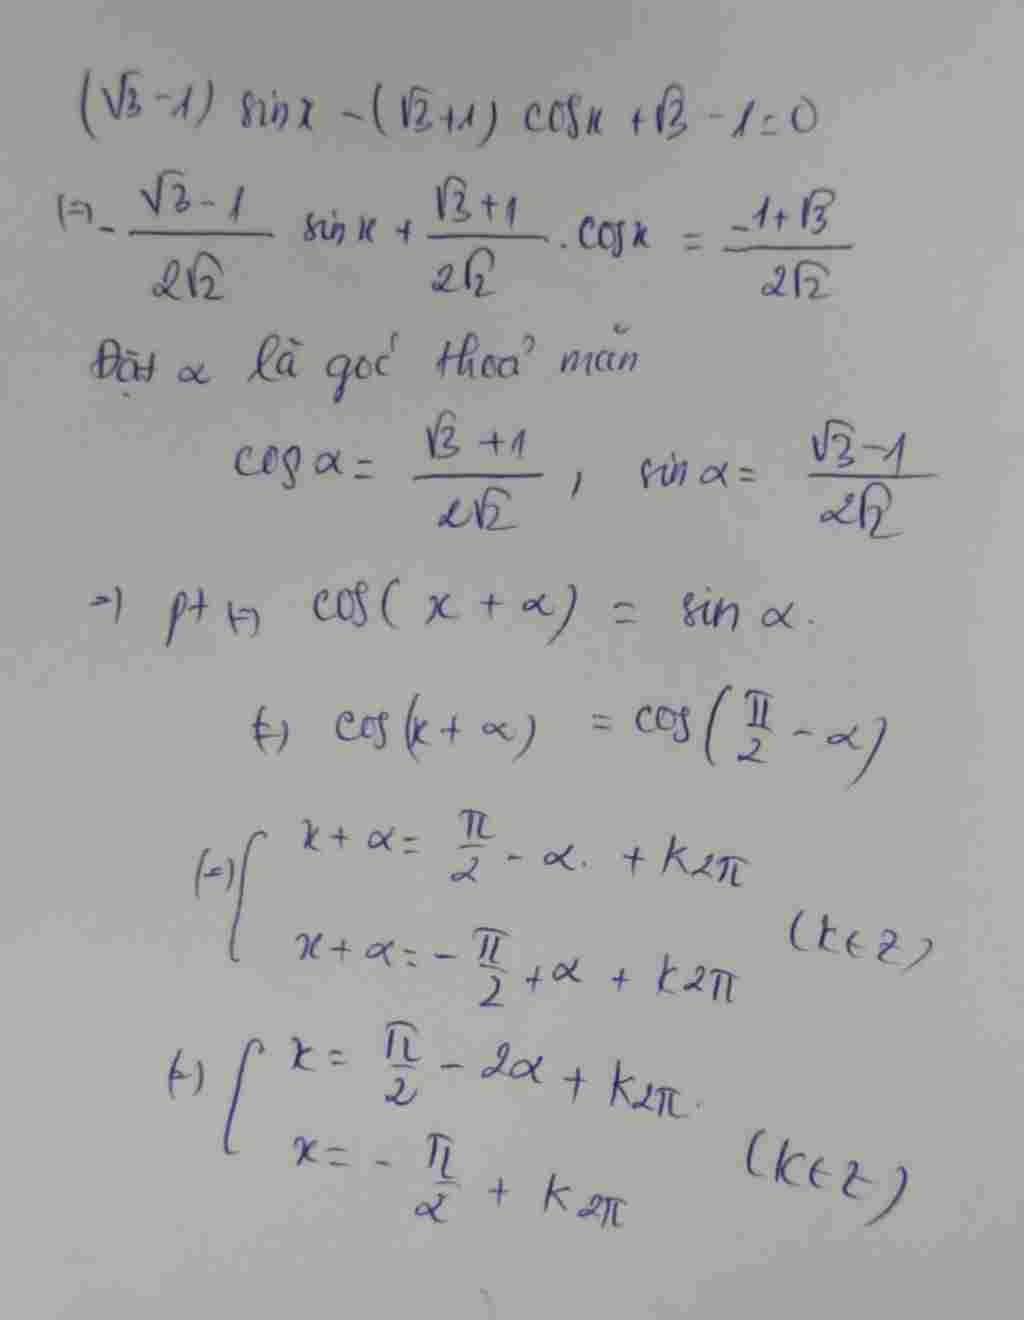 (√3 -1) sinx - (√3+1) cosx + √3 - 1 = 0
(=) - (√3 - 1)/(2√2) sin x + (√3 + 1)/(2√2) . cosx = (-1+√3)/(2√2)
Đặt α là góc thoả mãn
cos α = (√3 + 1)/(2√2) , sin α = (√3 - 1)/(2√2)
=) pt (=) cos( x + α) = sin α.
(=) cos(x + α) = cos(π/2 - α)
(=) [ x + α = π/2 - α. + k2π
x + α = - π/2 + α + k2π (k∈Z)
(=) [ x = π/2 - 2α + k2π.
x = - π/2 + k2π (k∈Z)